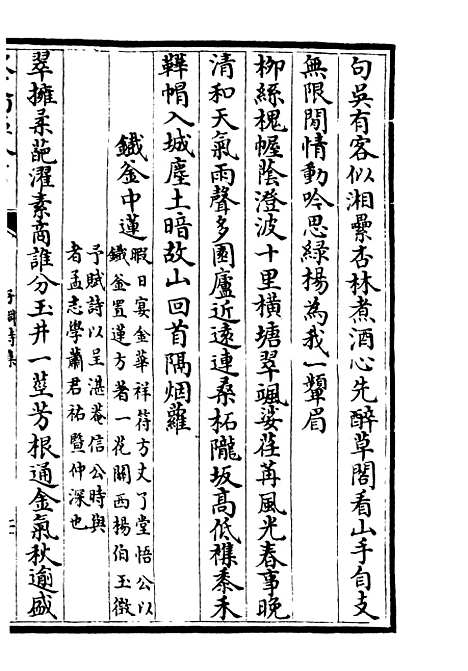 句吳有客似湘纍杏林煮酒心先醉草閣看山手自支
無限閒情動吟思綠楊為我一顰眉
柳絲槐幄蔭澄波十里橫塘翠颭荽荏苒風光春事晚
清和天氣雨聲多園廬近遠連桑柘隴坂高低襍黍禾
鞾帽入城塵土暗故山回首隔烟蘿
鐵釜中蓮
暇日宴金華祥符方丈了堂悟公以
鐵釜置蓮方著一花關西楊伯玉徵
予賦詩以呈湛菴信公時與
者孟志學蕭君祐暨仲深也
翠擁柔葩濯素商誰分玉井一莖芳根通金氣秋逾盛